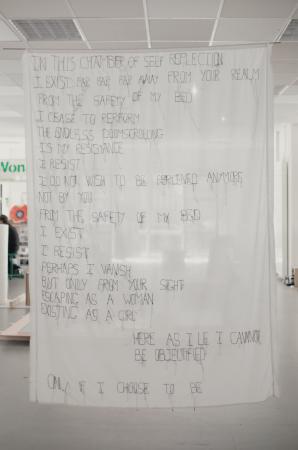 IN THIS CHAMBER OF SELF REFLECTION
I EXIST FAR FAR FAR AWAY FROM YOUR REALM
FROM THE SAFETY OF MY BED
I CEASE TO PERFORM
THE ENDLESS DOOMSCROLLING
IS MY RESISTANCE
I RESIST
I DO NOT WISH TO BE PERCEIVED ANYMORE
NOT BY YOU
FROM THE SAFETY OF MY BED
I EXIST
I RESIST
PERHAPS I VANISH
BUT ONLY FROM YOUR SIGHT
ESCAPING AS A WOMAN
EXISTING AS A GIRL
HERE AS I LIE I CANNOT
BE OBJECTIFIED
ONLY IF I CHOOSE TO BE